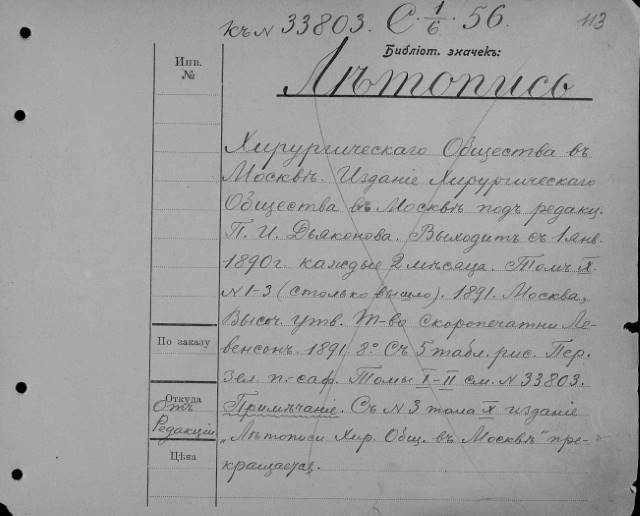 Къ № 33803. С. 1/6. 56. 113
Инв. №
Библіот. значекъ:
Лѣтопись
Хирургическаго Общества въ
Москвѣ. Изданіе Хирургическаго
Общества въ Москвѣ подъ редакц.
П. И. Дьяконова. Выходитъ съ 1 янв.
1890 г. каждые 2 мѣсяца. Томъ X.
№ 1-3 (столько вышло). 1891. Москва,
Высоч. утв. Т-во Скоропечатни Ле-
По заказу
венсонъ. 1891. 8º. Съ 5 табл. рис. Пер.
Зел. п.-саф. Томы I-II см. № 33803.
Откуда
Отъ Редакціи
Примѣчаніе. Съ № 3 тома X изданіе
„Лѣтописи Хир. Общ. въ Москвѣ" пре-
Цѣна
кращается.